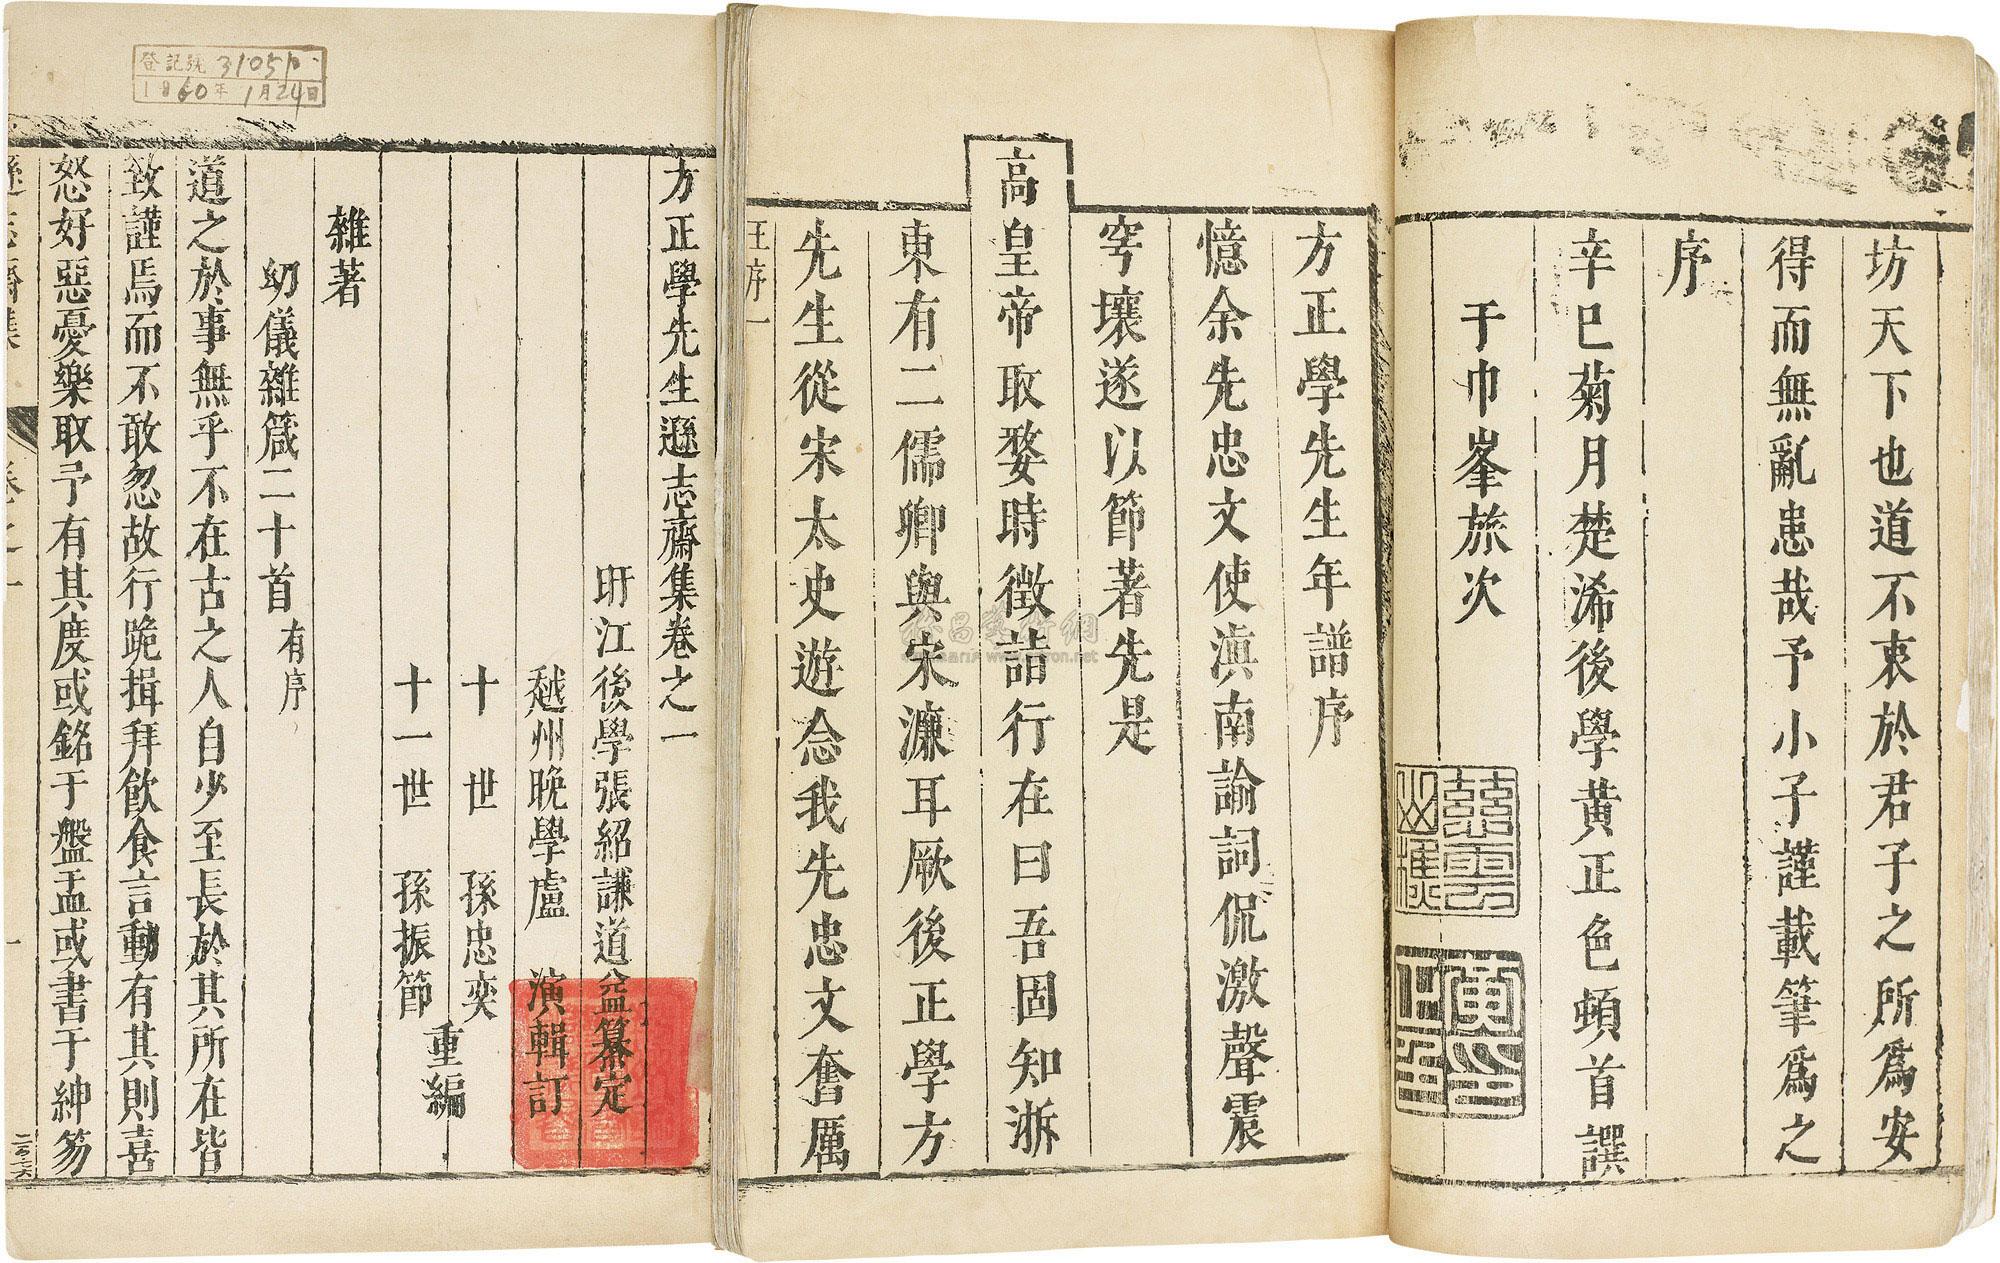 坊天下也道不衷於君子之所爲安
得而無亂患哉予小子謹載筆爲之
序
辛巳菊月楚浠後學黄正色頓首譔
于巾峯旅次
方正學先生年譜序
憶余先忠文使滇南諭詞侃激聲震
穹壤遂以節著先是
高皇帝取婺時徵詰行在曰吾固知浙
東有二儒卿與宋濂耳厥後正學方
先生從宋太史遊念我先忠文奮厲
汪序一
登記號 31051
1960年1月24日
方正學先生遜志齋集卷之一
盱江後學張紹謙道益纂定
越州晚學盧演輯訂
十世孫忠奕
十一世孫振節
重編
雜著
幼儀雜箴二十首有序
道之於事無乎不在古之人自少至長於其所在皆
致謹焉而不敢忽故行跪揖拜飲食言動有其則喜
怒好惡憂樂取予有其度或銘于盤盂或書于紳笏
遜志齋集 卷之一 一